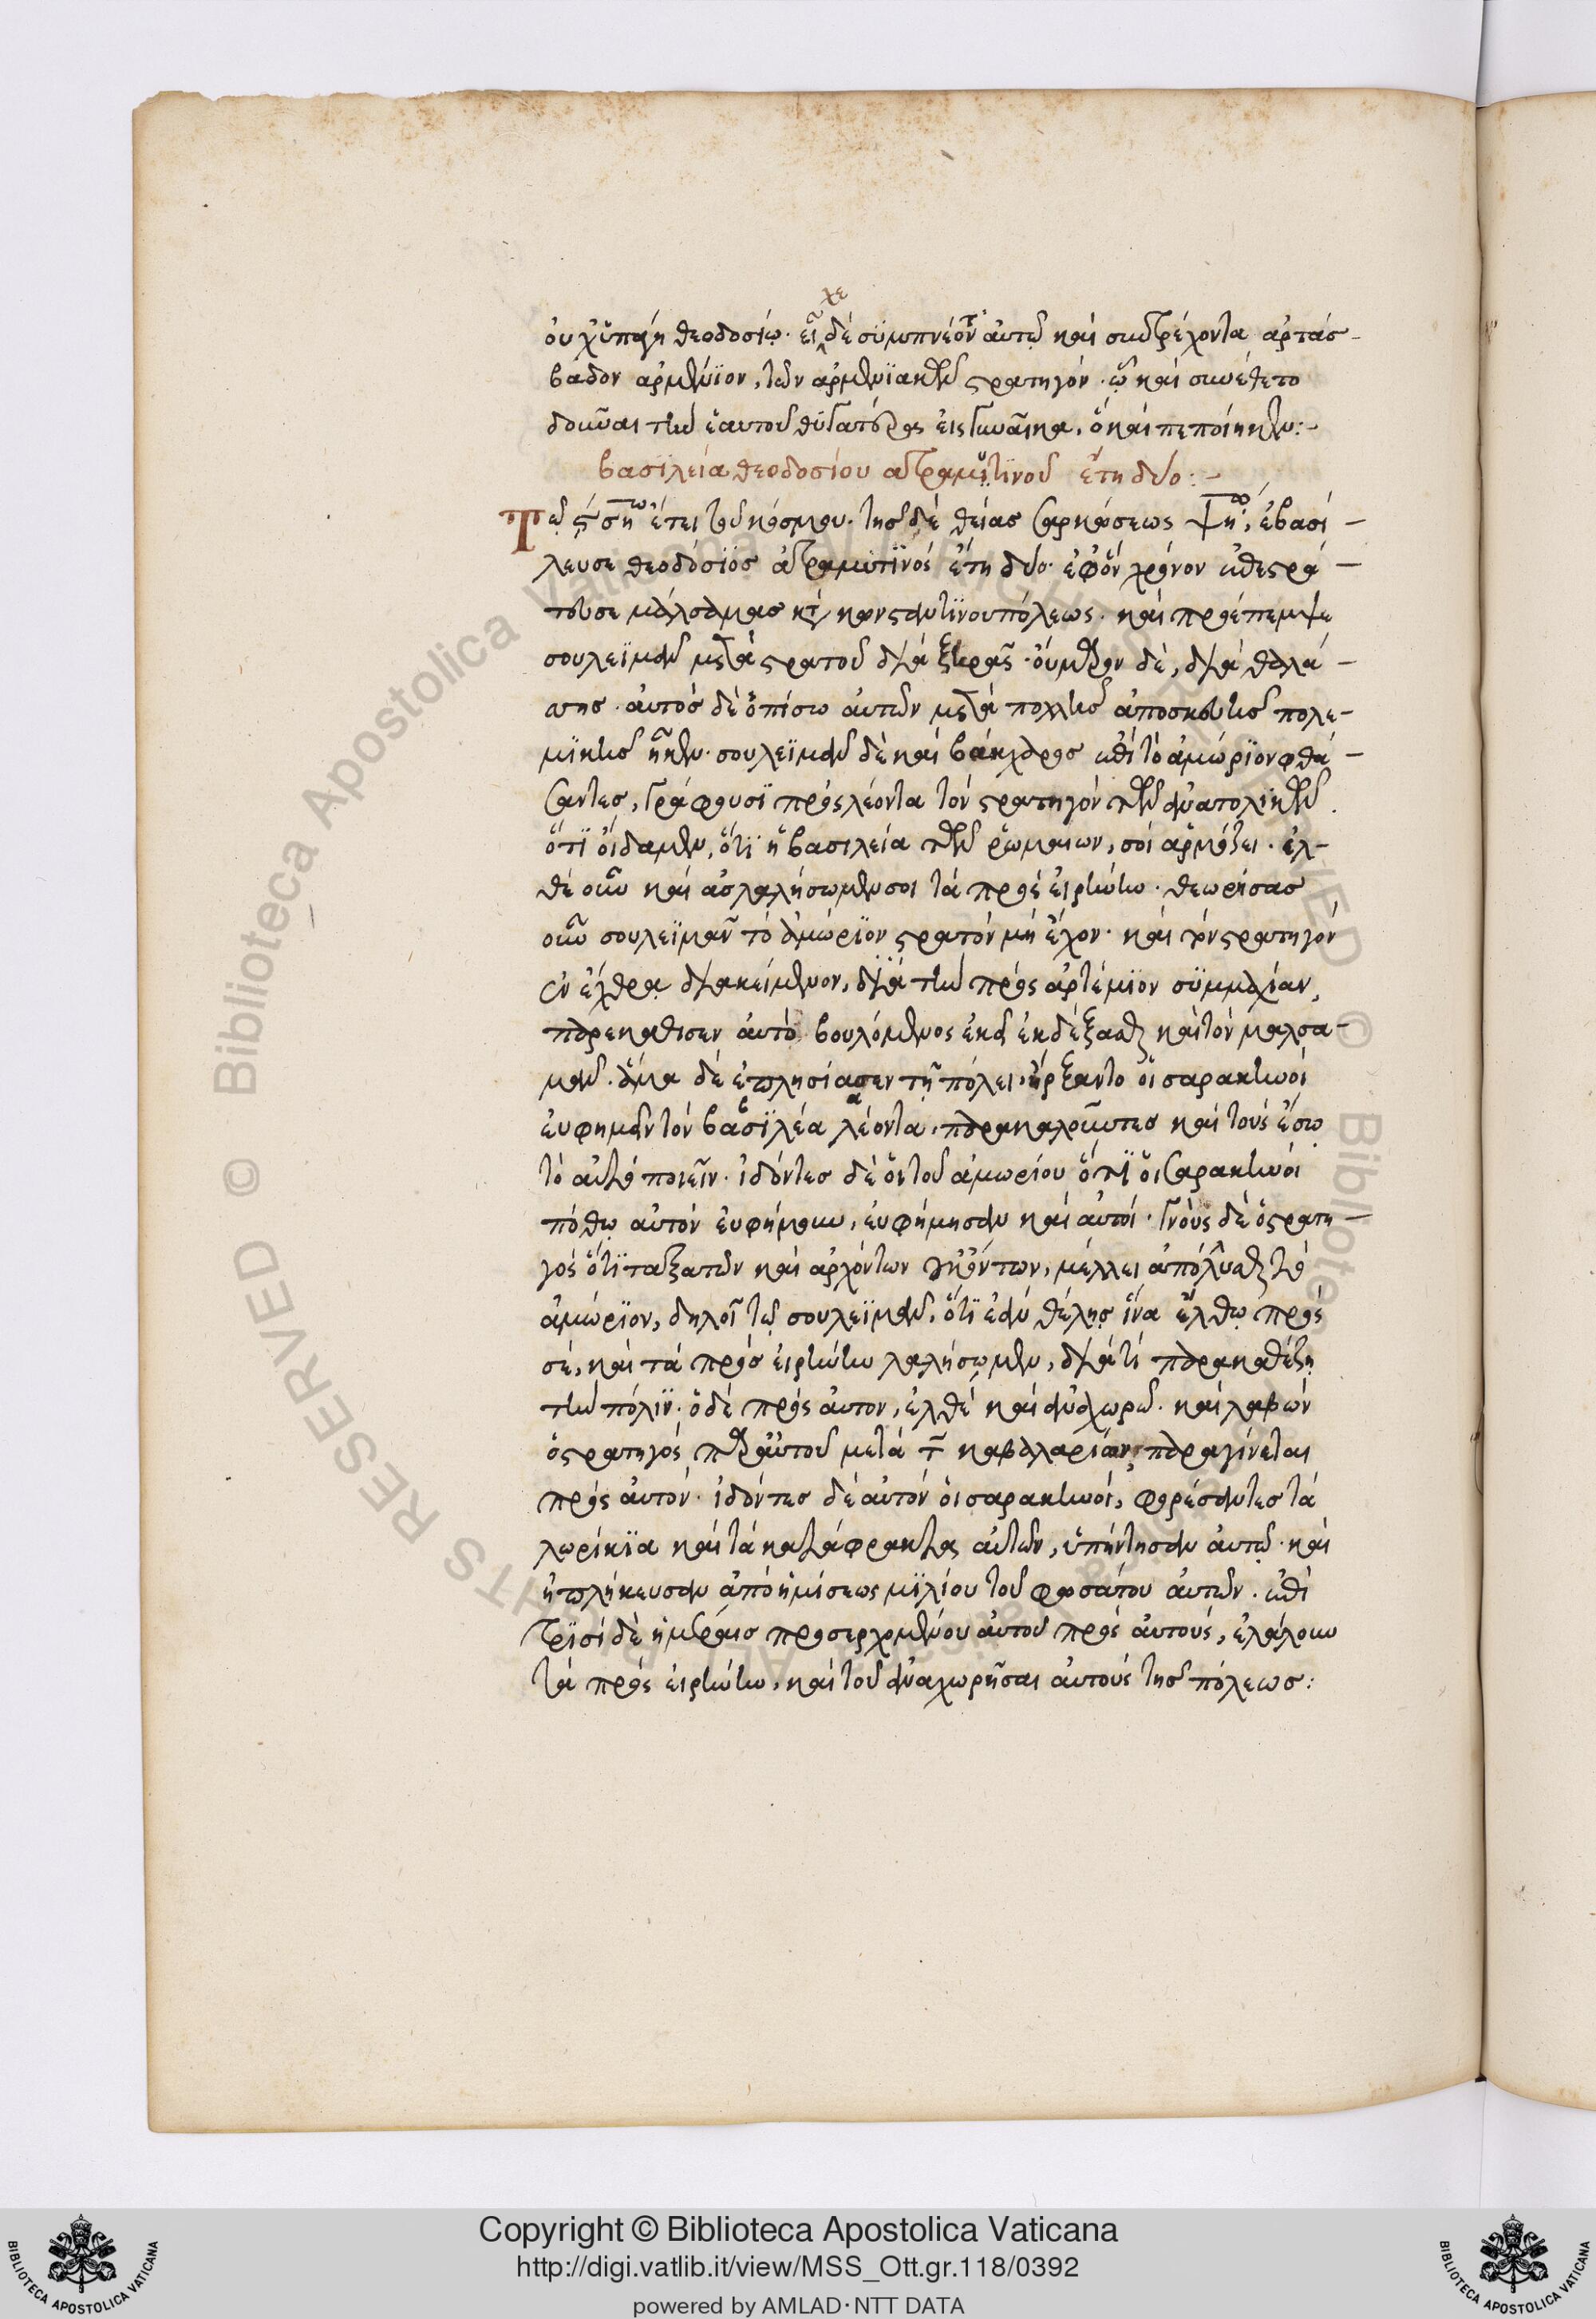 οὐχ ὑπάγη θεοδοσίῳ. εἶχε δὲ συμπνέοντα αὐτῷ καὶ συντρέχοντα ἀρτάσ-
βαδον ἀρμένιον, τῶν ἀρμενιακῶν στρατηγόν. ᾧ καὶ συνέθετο
δοῦναι τὴν ἑαυτοῦ θυγατέρα εἰς γυναῖκα. ὃ καὶ πεποίηκεν:-
βασϊλεία θεοδοσίου ἀτραμυτϊνοῦ ἔτη δύο:-
Τῷ ͵ςσηω ἔτει τοῦ κόσμου. τῆς δὲ θείας σαρκώσεως ψηω, ἐβασί-
λευσε θεοδόσϊος ἀτραμυτϊνὸς ἔτη δύο. ἐφ' ὃν χρόνον ἐπεστρά-
τευσε μάλσαμας κατὰ κωνσταντϊνουπόλεως. καὶ προέπεμψε
σουλεϊμὰν μετὰ στρατοῦ διὰ ξηρᾶς. οὔμαρον δὲ, διὰ θαλά-
σσης. αὐτὸς δὲ ὀπίσω αὐτῶν μετὰ πολλῆς ἀποσκευῆς πολε-
μϊκῆς ἧκεν. σουλεϊμὰν δὲ καὶ βάκχαρος ἐπὶ τὸ ἀμώρϊον φθά-
σαντες, γράφουσϊ πρὸς λέοντα τὸν στρατηγὸν τῶν ἀνατολϊκῶν.
ὅτϊ οἴδαμεν, ὅτϊ ἡ βασιλεία τῶν ῥωμαίων, σοὶ ἁρμόζει. ἐλ-
θὲ οὖν καὶ ἀς λαλήσωμεν σοι τὰ πρὸς εἰρήνην. θεωρήσας
οὖν σουλεϊμὰν τὸ ἀμώρϊον στρατὸν μὴ ἔχον. καὶ τὸν στρατηγὸν
ἐν ἔχθρᾳ διακείμενον, διὰ τὴν πρὸς ἀρτέμϊον συμμαχίαν,
παρεκάθισεν αὐτὸ. βουλόμενος ἐκεῖ ἐκδέξασθαι καὶ τὸν μάλσα-
μαν. ἅμα δὲ ἐπλησίασεν τῇ πόλει, ἤρξαντο οἱ σαρακηνοὶ
εὐφημεῖν τὸν βασϊλέα λέοντα, παρακαλοῦντες καὶ τοὺς ἔσω
τὸ αὐτὸ ποιεῖν. ἰδόντες δὲ οἱ τοῦ ἀμωρίου ὅτϊ οἱ σαρακηνοὶ
πόθῳ αὐτὸν εὐφήμουν, εὐφήμησαν καὶ αὐτοί. γνοὺς δὲ ὁ στρατη-
γὸς ὅτϊ ταξατῶν καὶ ἀρχόντων μὴ ὄντων, μέλλει ἀπολλύσθαι τὸ
ἀμώρϊον, δηλοῖ τῷ σουλεϊμὰν, ὅτϊ ἐὰν θέλῃς ἵνα ἔλθω πρὸς
σὲ, καὶ τὰ πρὸς εἰρήνην λαλήσωμεν, διὰ τί παρακαθέζῃ
τὴν πόλϊν. ὁ δὲ πρὸς αὐτὸν, ἐλθὲ καὶ ἀναχωρῶ. καὶ λαβὼν
ὁ στρατηγὸς μεθ' αὐτοῦ μετὰ τ καβαλαρίων, παραγίνεται
πρὸς αὐτόν. ἰδόντες δὲ αὐτὸν οἱ σαρακηνοὶ, φορέσαντες τὰ
λωρίκϊα καὶ τὰ κατάφρακτα αὐτῶν, ὑπήντησαν αὐτῷ. καὶ
ἠπλήκευσαν ἀπὸ ἡμίσεως μϊλίου τοῦ φοσάτου αὐτῶν. ἐπὶ
τρϊσὶ δὲ ἡμέραις προσερχομένου αὐτοῦ πρὸς αὐτοὺς, ἐλάλουν
τὰ πρὸς εἰρήνην, καὶ τοῦ ἀναχωρῆσαι αὐτοὺς τῆς πόλεως:
Copyright © Biblioteca Apostolica Vaticana
http://digi.vatlib.it/view/MSS_Ott.gr.118/0392
powered by AMLAD·NTT DATA